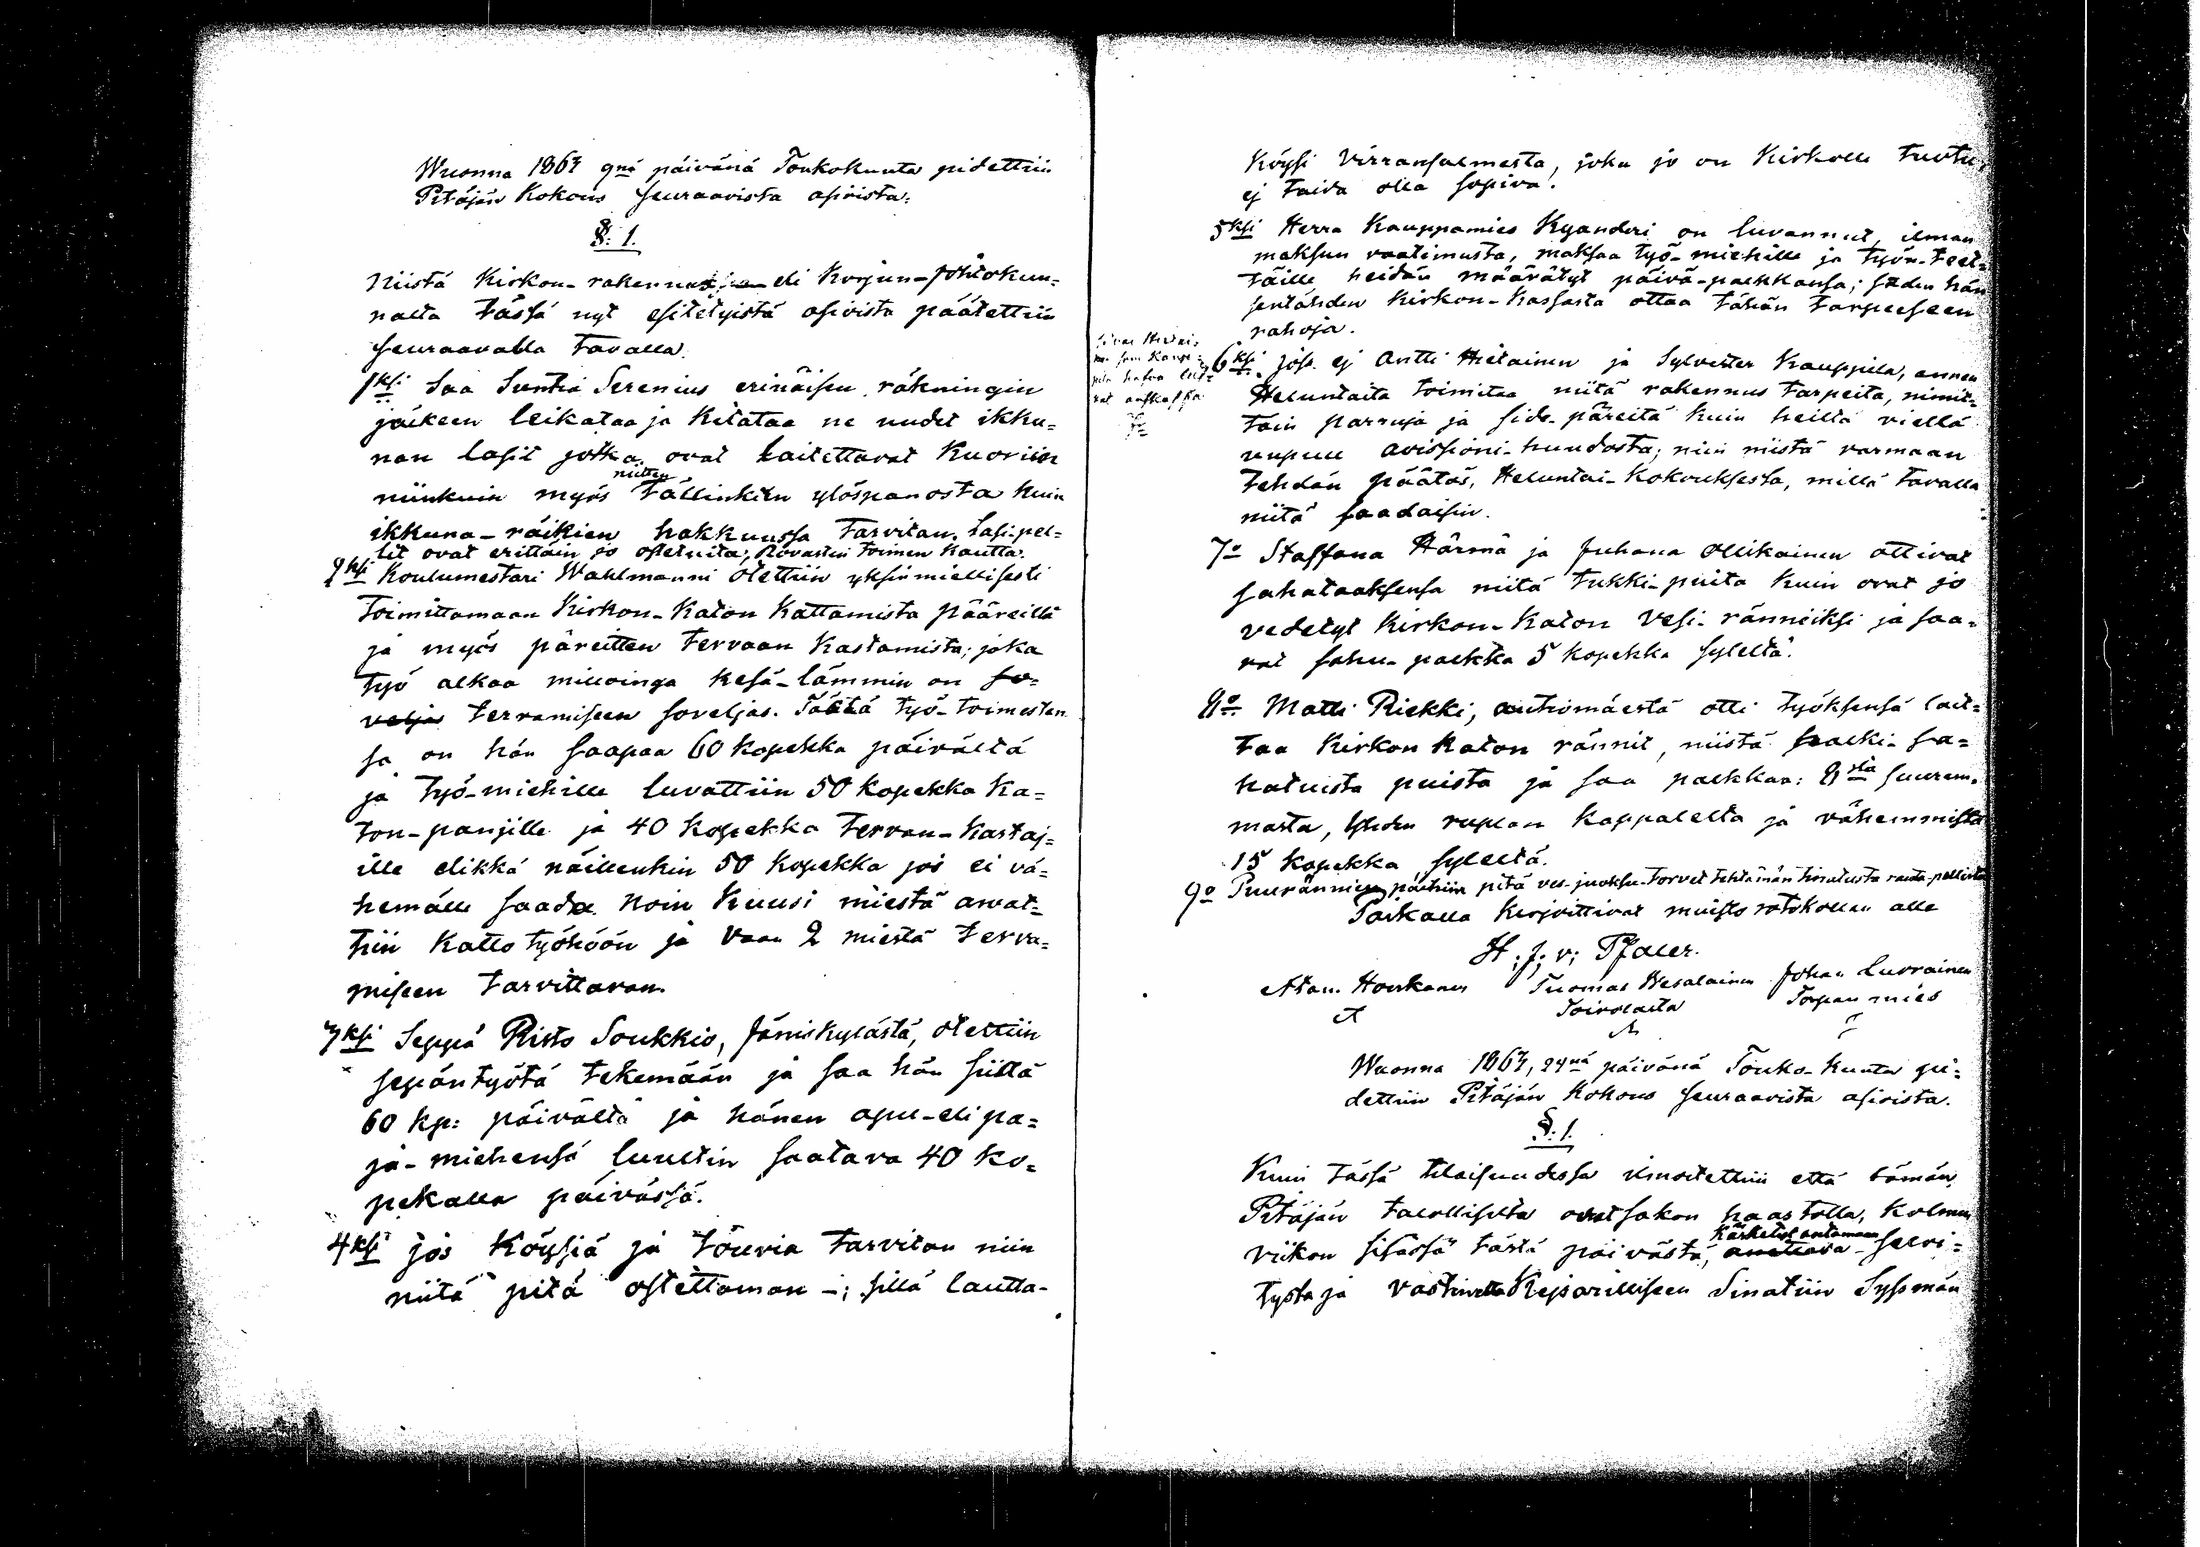 Wuonna 1863 9nä päivänä Toukokuuta pidettiin
Pitäjän Kokous seuraavista asioista:
§: 1.
Niistä Kirkon-rakennus eli Korjun-Johtokun=
nalta tässä nyt esitetyistä asioista päätettiin
seuraavalla tavalla.
1ksi Saa Suntia Serenius erinäisen räkningin
jälkeen leikataa ja kitataa ne uudet ikku=
nan lasit jotka ovat laitettavat Kuoriin
niinkuin myös niitten tällinkien ylöspanosta kuin
ikkuna-räikien hakkuussa tarvitan. Lasi-pel=
tit ovat erittäin jo ostetuita, Rovastin toimen kautta.
2ksi Koulumestari Wahlmanni otettiin yksinmielisesti
toimittamaan Kirkon-Katon Kattamista pääreillä
ja myös päreitten tervaan Kastamista; joka
työ alkaa milloinga kesä-lämmin on so=
veljas tervamiseen soveljas. Tästä työ-toimestan
sa on hän saapaa 60 kopekka päivältä
ja työ-miehille luvattiin 50 kopekka Ka=
ton-panijille ja 40 kopekka tervan-Kastaj=
ille elikkä näillenkin 50 kopekka jos ei vä=
hemälle saada. Noin kuusi miestä arvat=
tiin Katto työhöön ja vaan 2 miestä terva=
miseen tarvittavan.
3ksi Seppä Risto Soukkio, Jäniskylästä, otettiin
sepäntyötä tekemään ja saa hän siitä
60 kp: päivältä ja hänen apu-eli pa=
ja-miehensä luultin saatava 40 ko=
pekalla päivässä.
4ksi jos Köysiä ja töuvia tarvitan niin
niitä pitä ostettaman -; sillä lautta-
Köysi Virransalmesta, joka jo on Kirkolle tuotu,
ej taida olla sopiva.
5ksi Herra Kauppamies Kyanderi on luvannut, ilman
maksun vaatimusta, maksaa työ-miehille ja työn-teet=
täille heidän määrätyt päivä-palkkansa; saaden hän
sentähden Kirkon-Kassasta ottaa tähän tarpeeseen
rahoja.
6ksi jos ej Antti Hietainen ja Sylvester Kauppila, ennen
Heluntaita toimitaa niitä rakennus tarpeita, nimit=
täin parruja ja side-päreitä kuin heiltä viellä
uupuu avissioni-huudosta; niin niistä varmaan
tehdän päätös, Heluntai-Kokouksesta, millä tavalla
niitä saadaisin.
7o Staffana Härmä ja Juhana Ollikainen ottivat
sahataaksensa niitä tukki-puita kuin ovat jo
vedetyt Kirkon-Katon vesi-ränneiksi ja saa=
vat sahu-palkka 5 kopekka syleltä.
8o Matti Riekki, autiomäestä otti työksensä lait=
taa Kirkon Katon rännit, niistä halki-sa=
hatuista puista ja saa palkkaa: 8sta suurem=
masta, yhden ruplan kappaleelta ja vähemmistä
15 kopekka syleltä.
9o Puurännien päihin pitä ves-juoksu-torvet tehtämän tinatusta rauta-pellistä
Paikalla kirjoittivat muisto rotokollan alle
H. J. v; Pfaler.
Atam. Hoerkanen Tuomas Wesalainen Johan Luvrainen
Toivolasta Torpan mies
Wuonna 1863, 24nä päivänä Touko-Kuuta pi=
dettiin Pitäjän Kokous seuraavista asioista.
§: 1.
Kuin tässä tilaisuudessa ilmoitettiin että tämän
Pitäjän talollisilta ovat sakon haastolla, kolmen
viikon sisässä tästä päivästä, Käsketyt antamaan selvi=
tystä ja vastinetta Kejsarilliseen Sinatiin Sysmän